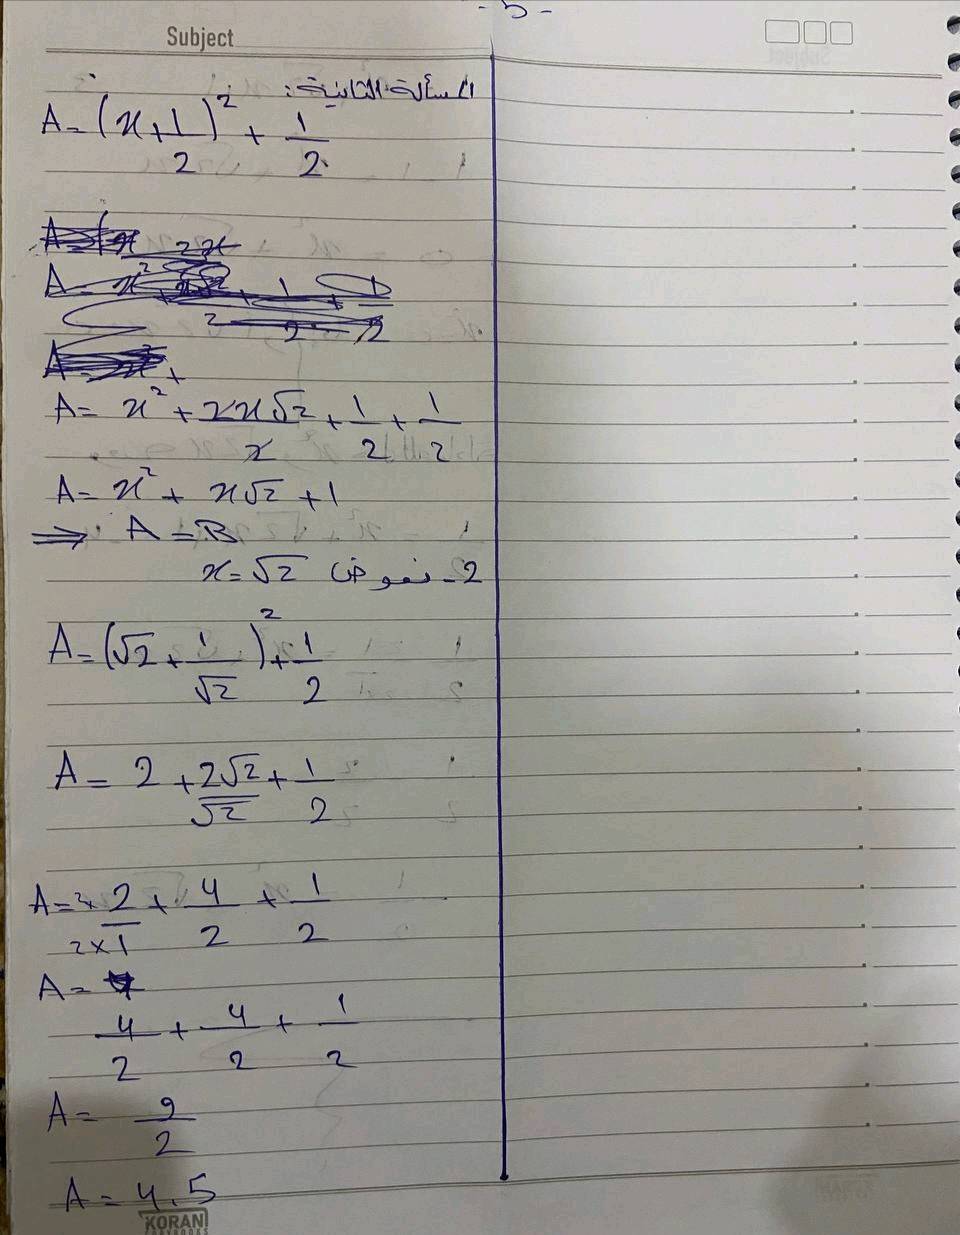 - 5 -
Subject
المسألة الثانية:
A = (x + 1/2)² + 1/2
A = x² + 2x√2/2 + 1/2 + 1/2
A = x² + x√2 + 1
⇒ A = B
2- نعوض x = √2
A = (√2 + 1/√2)² + 1/2
A = 2 + 2√2/√2 + 1/2
A = 2×2/2×1 + 4/2 + 1/2
A =
4/2 + 4/2 + 1/2
A = 9/2
A = 4.5
KORAN